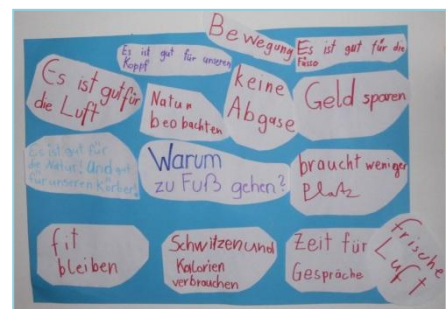 Bewegung
Es ist gut für unseren
Kopf
Es ist gut für die
Füsse
Es ist gut für
die Luft
Natur
beobachten
keine
Abgase
Geld sparen
Es ist gut für
die Natur! Und gut
für unseren Körber!
Warum
zu Fuß gehen?
braucht weniger
Platz
fit
bleiben
Schwitzen und
Kalorien
verbrauchen
Zeit für
Gespräche
frische
Luft